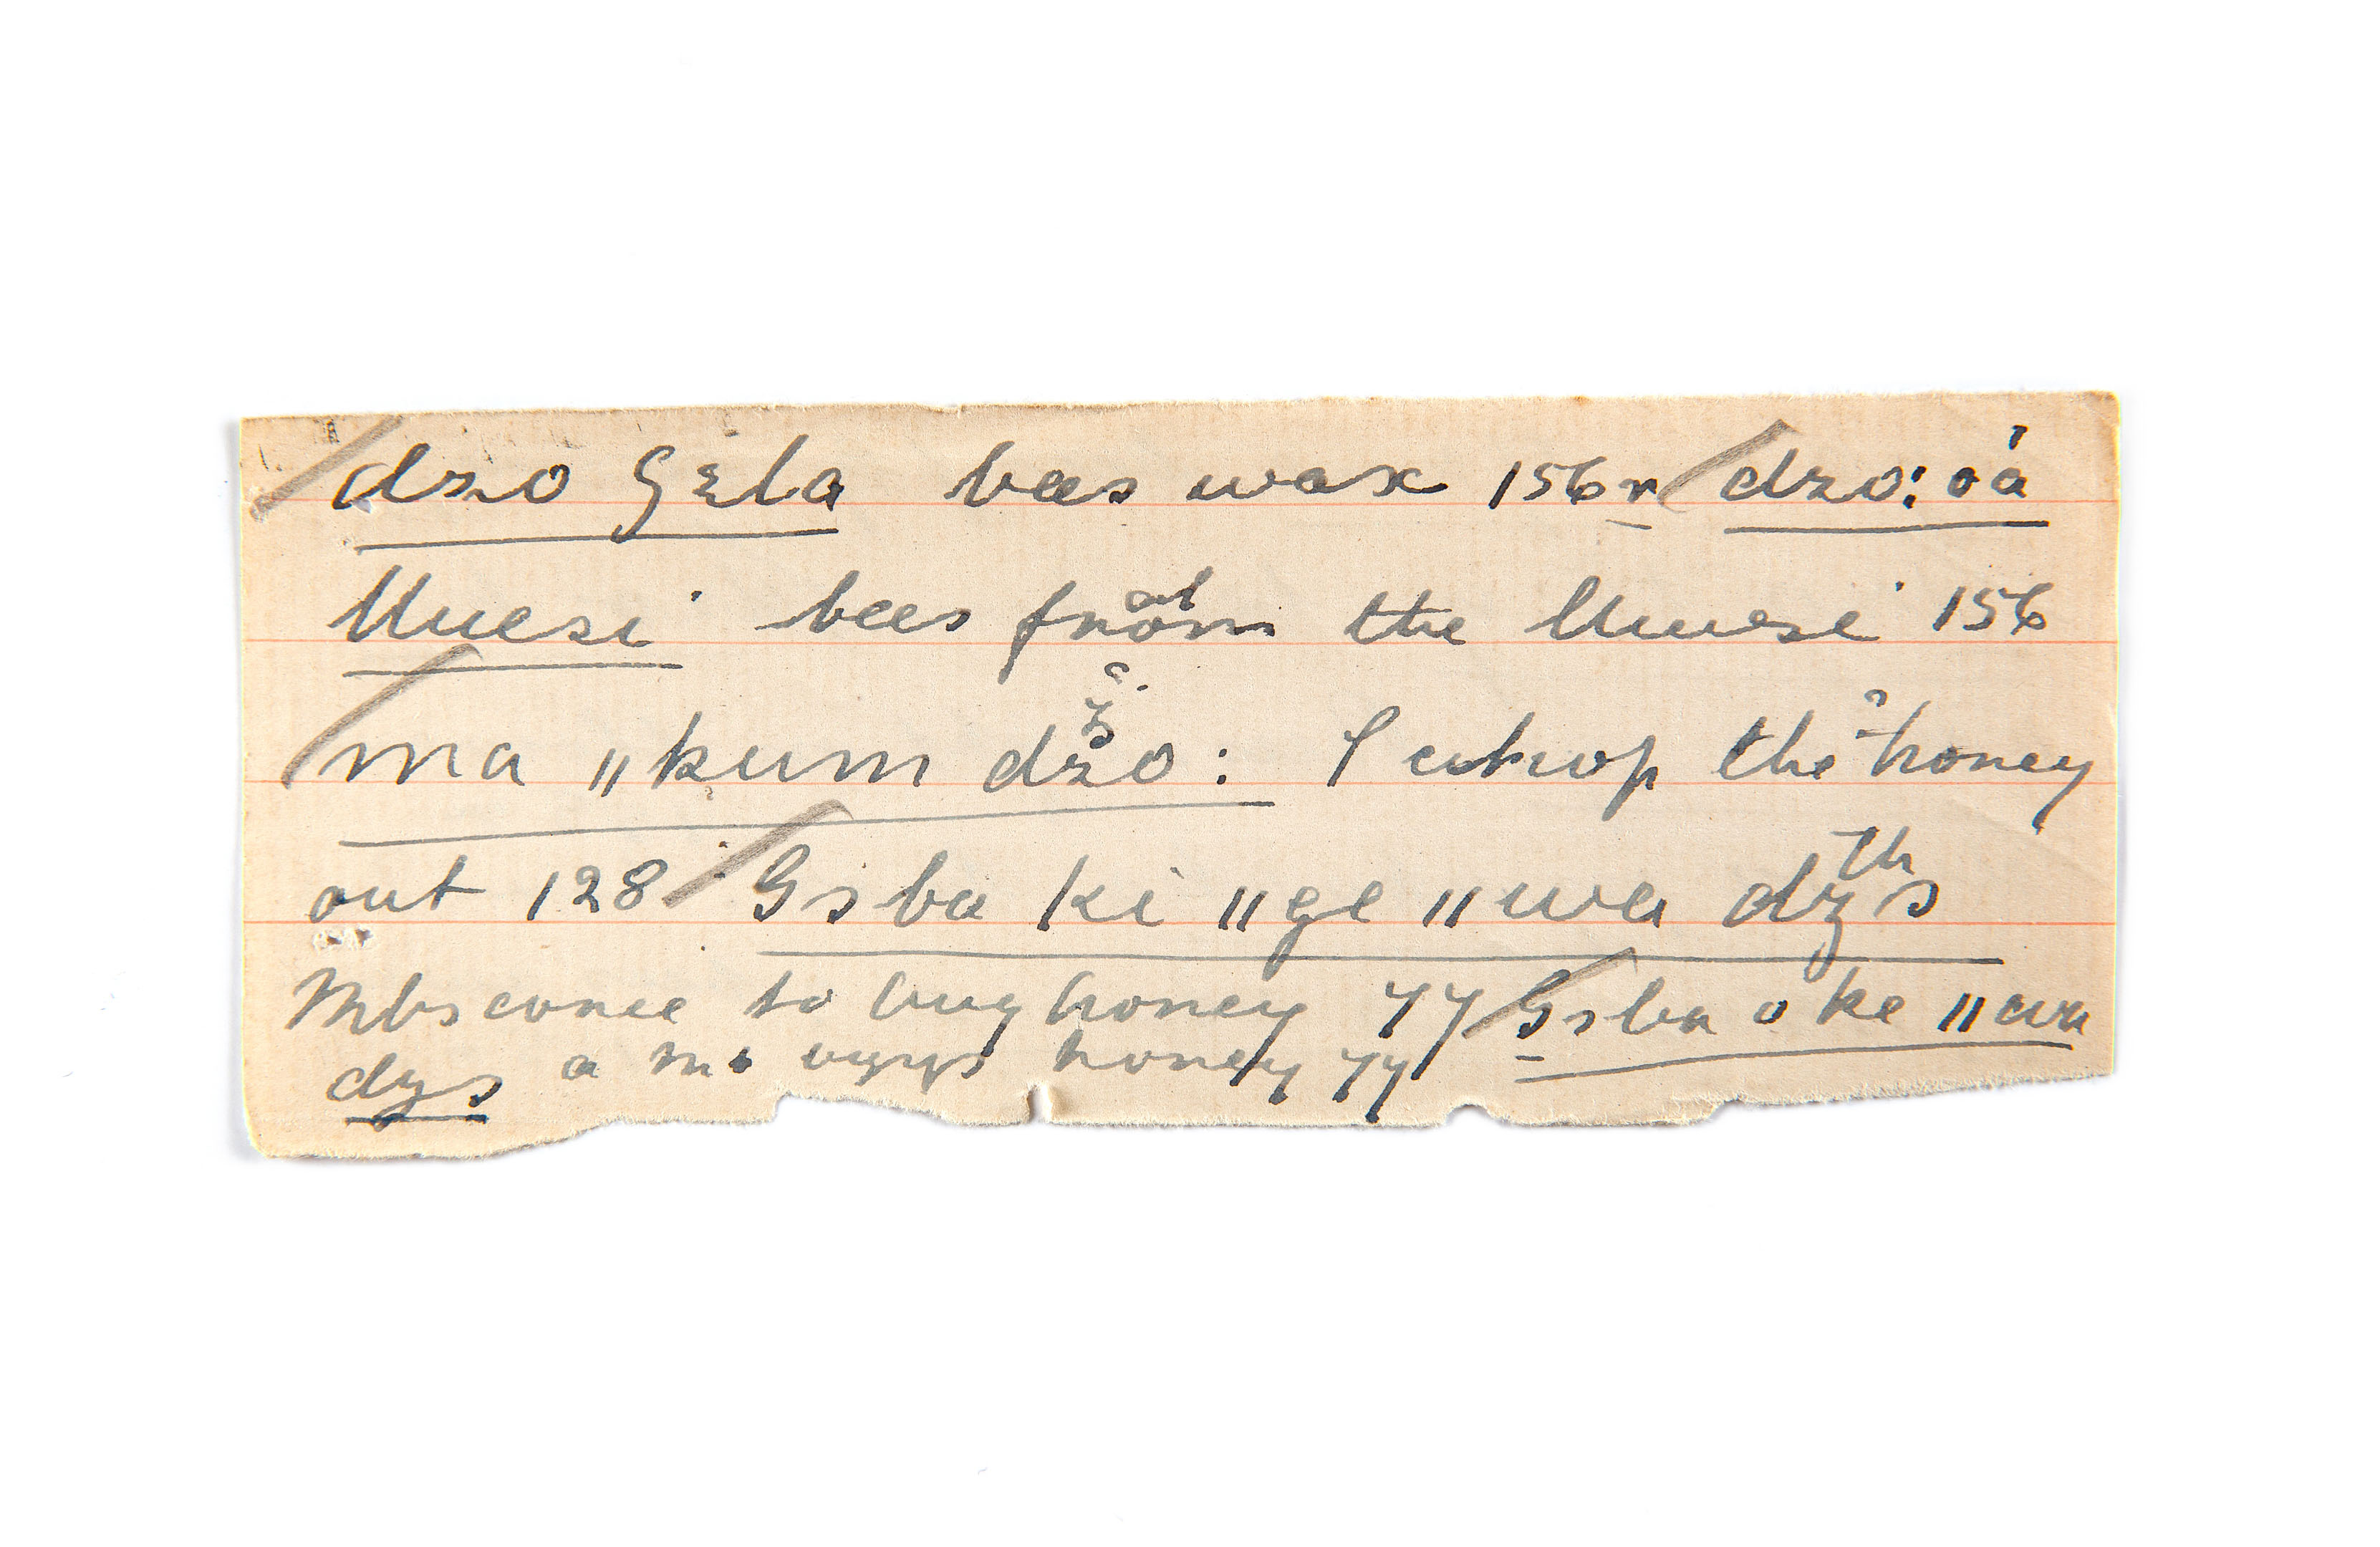 dzo Gɛla bees wax 156r dzo: oá
Uuesi bees from at the Uuesi 156
ma ǁkum dzo: I chop the honey
out 128 Gsba ki ǁge ǁwa dzs th
Mbs come to buy honey 77 Gsba o ke ǁwa
dzs a buys honey 77